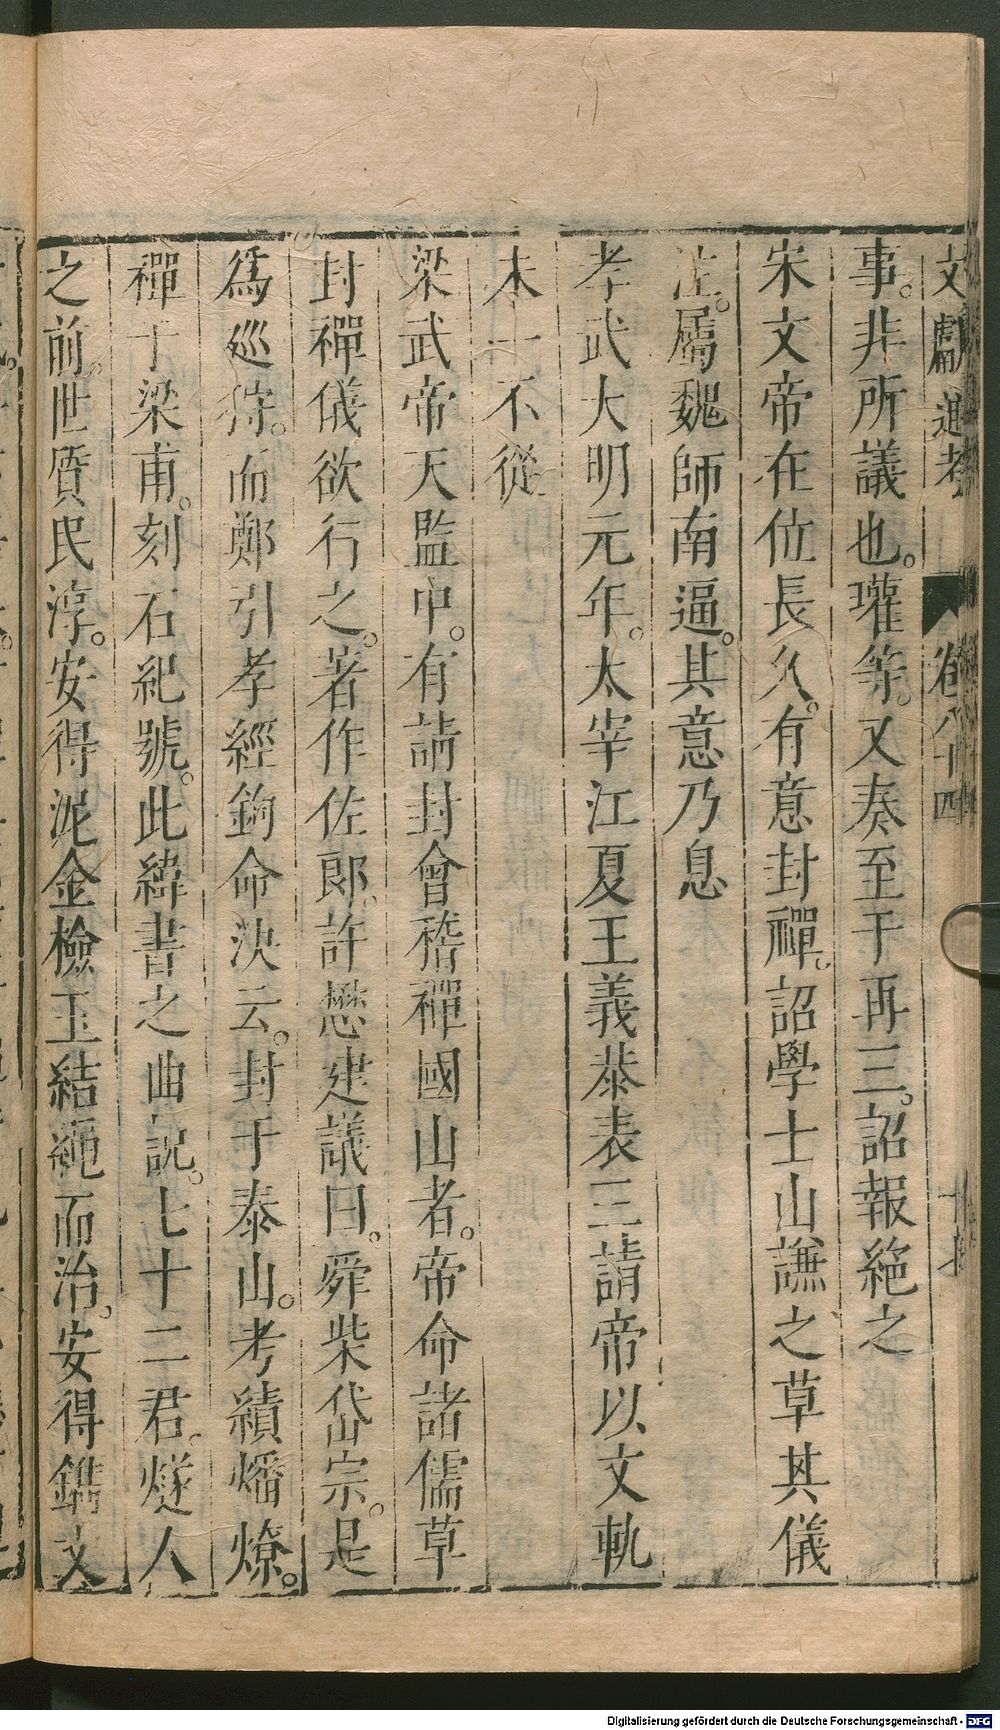 文獻通考 卷八十四
事。非所議也。瓘等。又奏至于再三。詔報絕之
宋文帝在位長久。有意封禪。詔學士山謙之草其儀
注。屬魏師南逼。其意乃息
孝武大明元年。太宰江夏王義恭表三請帝以文軌
未一不從
梁武帝天監中。有請封會稽禪國山者。帝命諸儒草
封禪儀欲行之。著作佐郎。許懋建議曰。舜柴岱宗。是
爲巡狩。而鄭引孝經鉤命決云。封于泰山。考績燔燎。
禪于梁甫。刻石紀號。此緯書之曲說。七十二君。燧人
之前。世質民淳。安得泥金檢玉結繩而治。安得鐫文
Digitalisierung gefördert durch die Deutsche Forschungsgemeinschaft - DFG